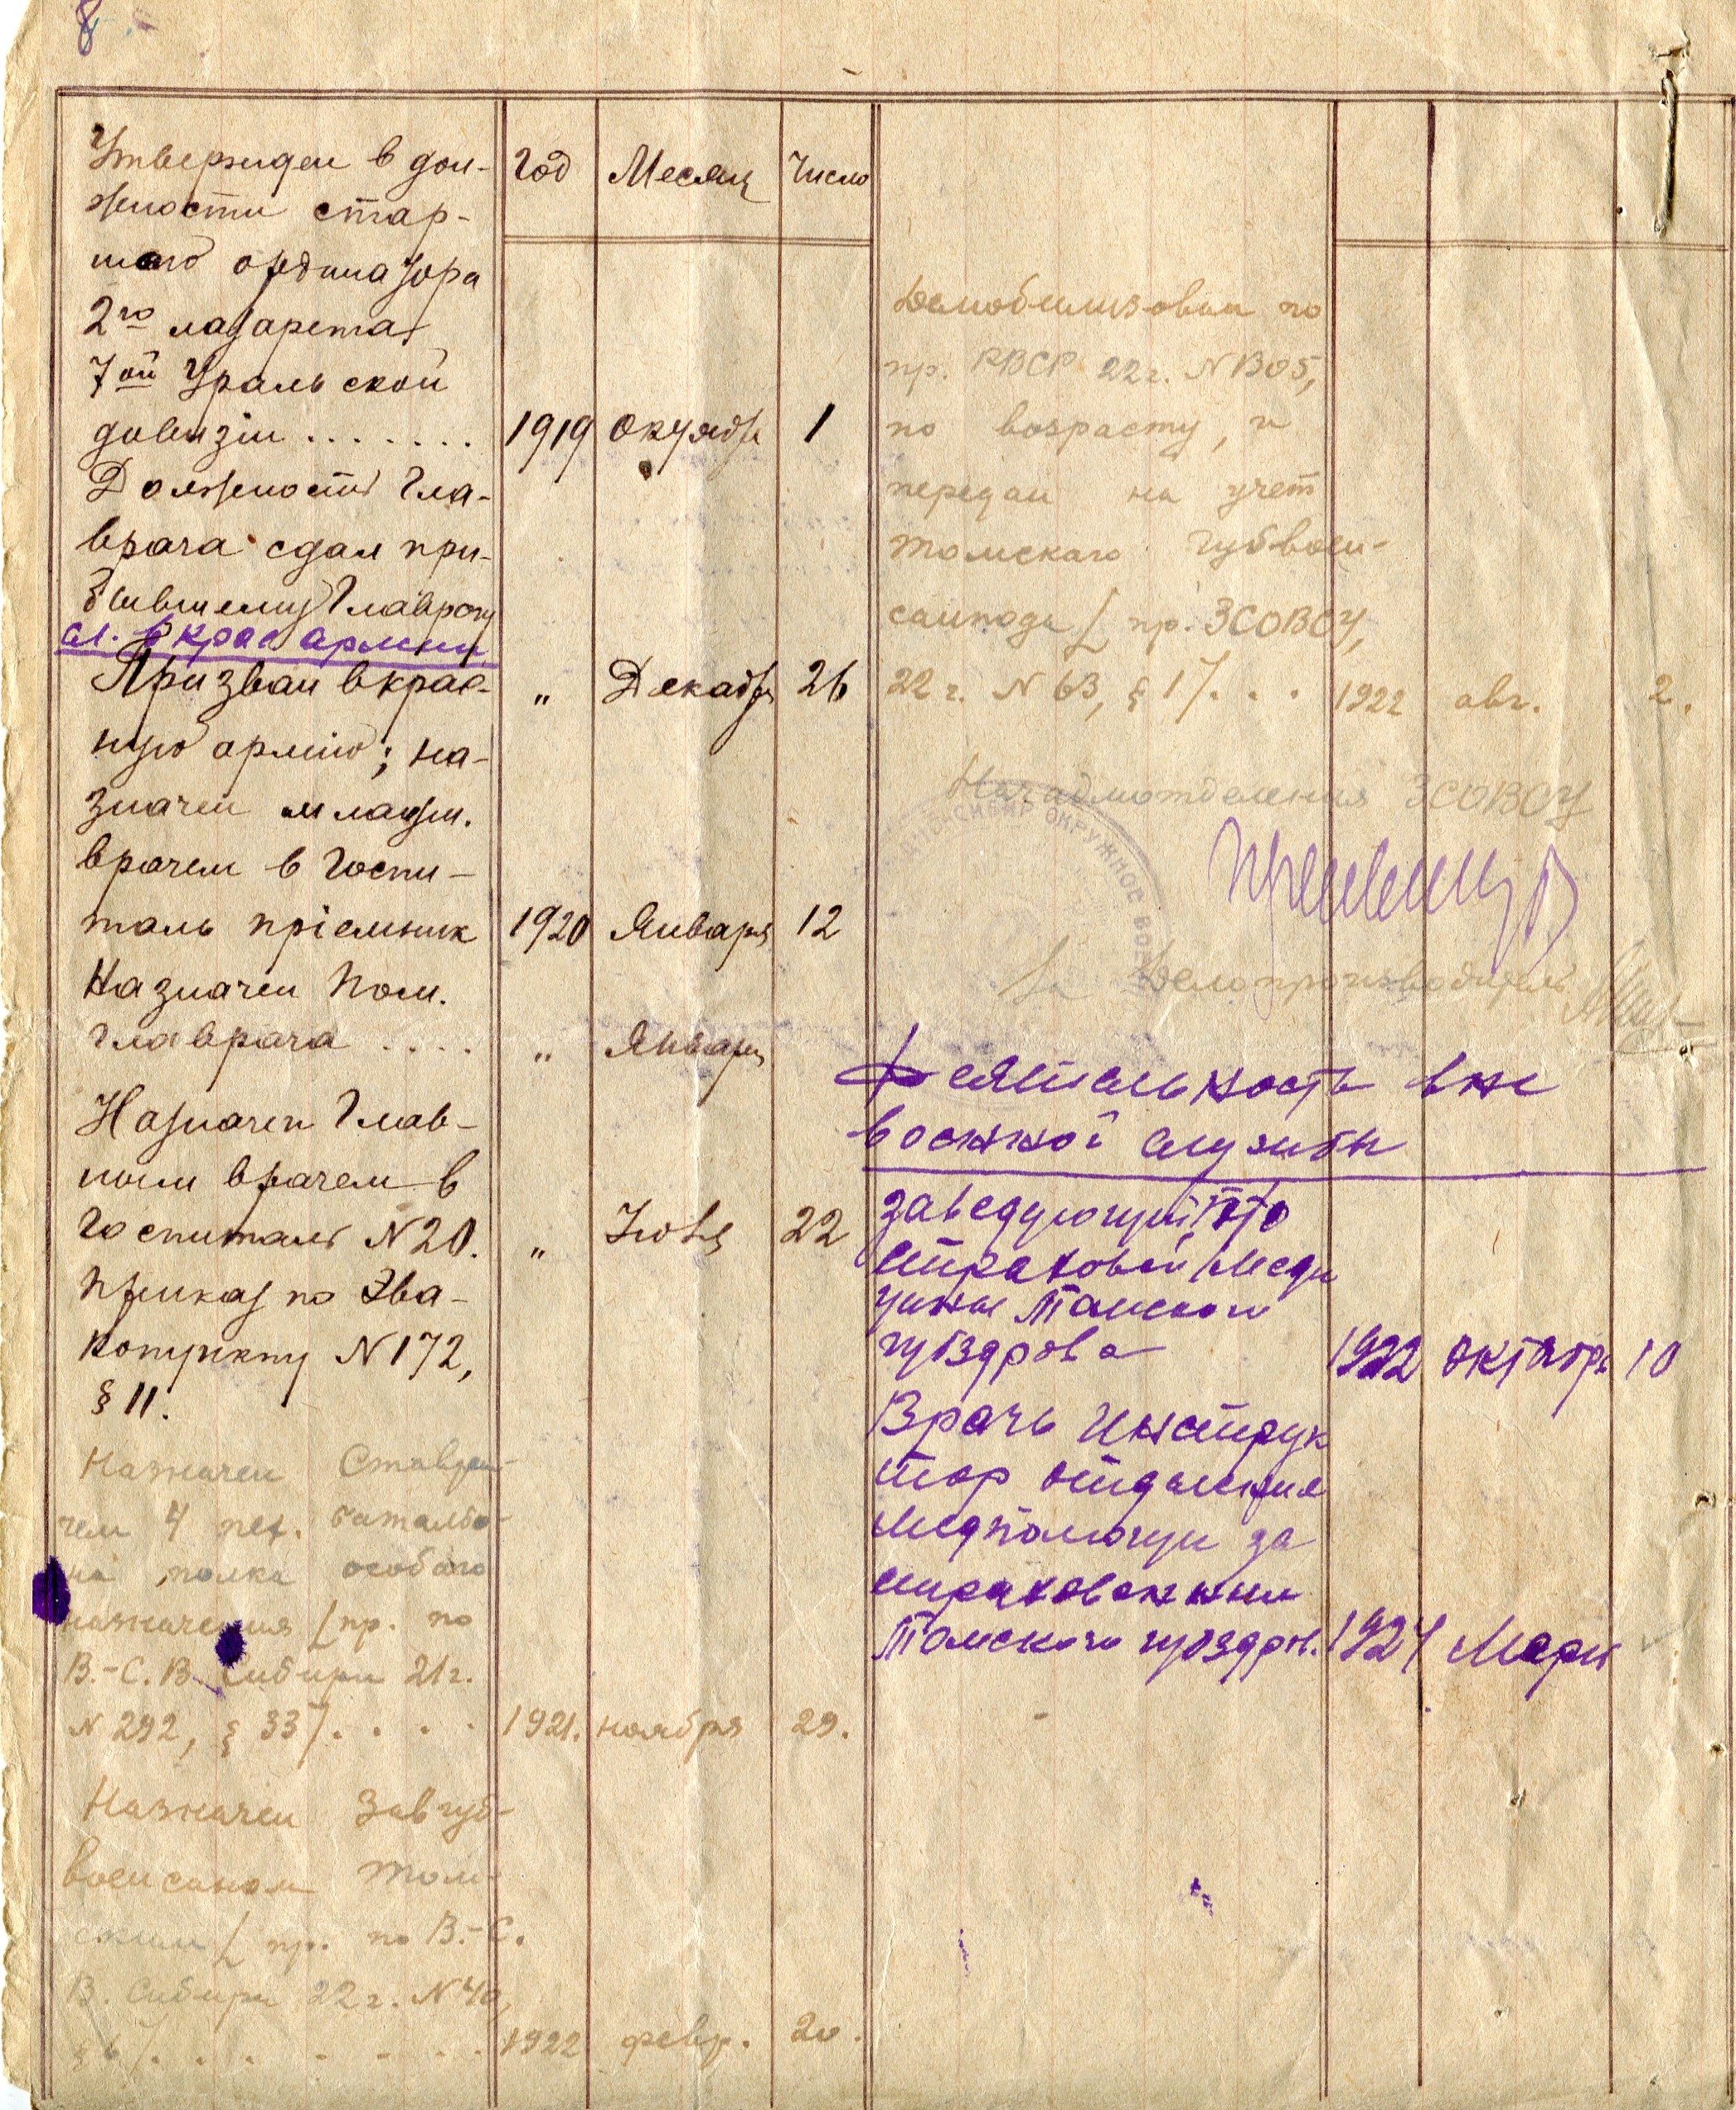 8
Утвержден в дол-
жности стар-
шаго ординатора
2го лазарета
7ой Уральской
дивизiи . . . . . . .
Год Месяц Число
1919 Октября 1
Должность Гла-
врача сдал при-
бывшему Главрачу
сл. в крас армии
„ Декабря 26
Призван в крас-
ную армiю; на-
значен младш.
врачем в Госпи-
таль прiемник
1920 Января 12
Назначен Пом.
главрача . . . .
„ Января
Назначен Глав-
ным врачем в
Госпиталь N 20.
„ Июня 22
Приказ по Эва-
копункту N 172,
§ 11.
Назначен Ставрач-
чем 4 пех. батальо-
на полка особого
назначения /пр. по
В.-С. В. Сибири 21 г.
N 292, § 33/. . . .
1921. ноября 29.
Назначен Завгуб-
военсаном Том-
ским / пр. по В.-С.
В. Сибири 22 г. N 40,
§ 6/. . . . . . . .
1922 февр. 20.
Демобилизован по
пр. РВСР 22 г. N В05,
по возрасту, и
передан на учет
Томскаго Губвоен-
санпода / пр. ЗСОВСУ,
22 г. N 63, § 1/. . . 1922 авг. 2.
Начадмотделения ЗСОВСУ
СИБИР ОКРУЖНОЕ ВОЕ
За Делопроизводитель
Деятельность вне
военной службы
Заведующий П/о
Страховой Меди
цины Томского
губздрава 1922 октябрь 10
Врач Инструк
тор отделения
Медпомощи за
страхованным
Томского губздрав. 1924 Март